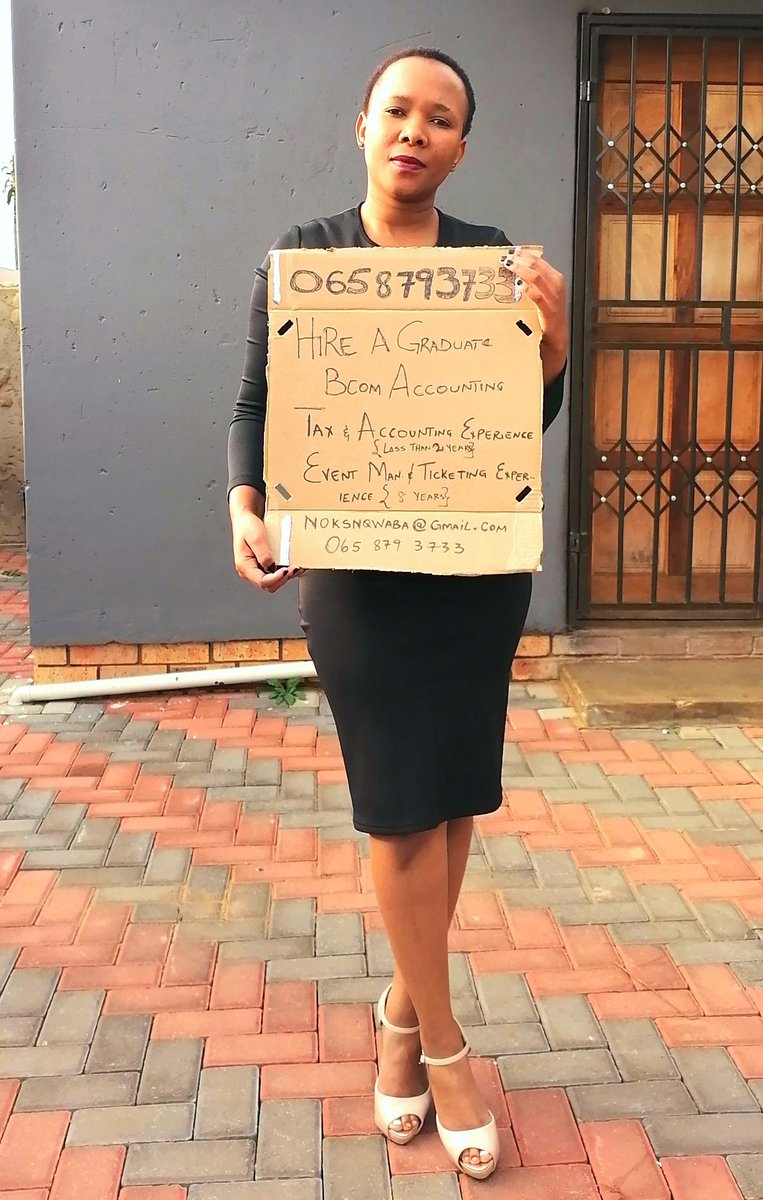 0658793733
HIRE A GRADUATE
BCOM ACCOUNTING
TAX & ACCOUNTING EXPERIENCE
{LASS THAN 2 YEAR}
EVENT MAN. & TICKETING EXPER-
IENCE { 8 YEARS}
NOKSNQWABA@GMAIL.COM
065 879 3733